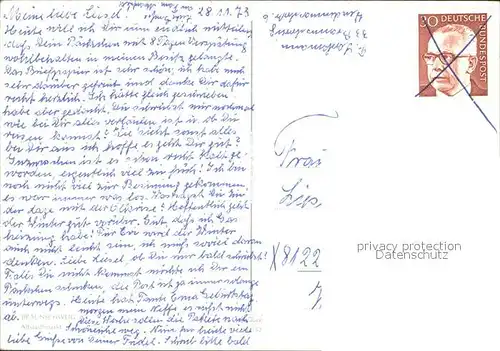 Meine liebe Liesel! 28.11.73
Heute will ich Dir nun endlich mitteilen
daß Dein Päckchen mit 8 Tagen Verspätung
wohlbehalten in meinen Besitz gelangte.
Das Briefpapier ist sehr schön, ich habe mich
sehr darüber gefreut und danke Dir dafür
recht herzlich. Ich hätte gleich geschrieben
habe aber gedacht, Du schreibst mir nochmal
wie bei Dir alles verlaufen ist u. ob Du
reisen kannst? Wie sieht sonst alles
bei Dir aus, ich hoffe es geht Dir gut?
Inzwischen ist es schon recht kalt ge-
worden, eigentlich viel zu früh! Ich bin
noch nicht viel zur Besinnung gekommen,
es war immer was los.
der Winter gut vorüber. Gut, daß ich Gas
heizung habe! Für Evi wird der Winter
auch nicht leicht sein, ich muß soviel daran
denken. Liebe Liesel ob Du mir bald schreibst?
Falls Du nicht kommst möchte ich Dir ein
Päckchen schicken, die Post ist ja immer solange
unterwegs. Heute hat Tante Erna Geburtstag
morgen
ab. diese Woche sollen die Pakete nach
weg. Nun für heute viele
liebe Grüße von Deiner Friedel. Schreib bitte bald
33 Braunschweig
30
DEUTSCHE
BUNDESPOST
Frau
X 8122
privacy protection
Datenschutz
BRAUNSCHWEIG